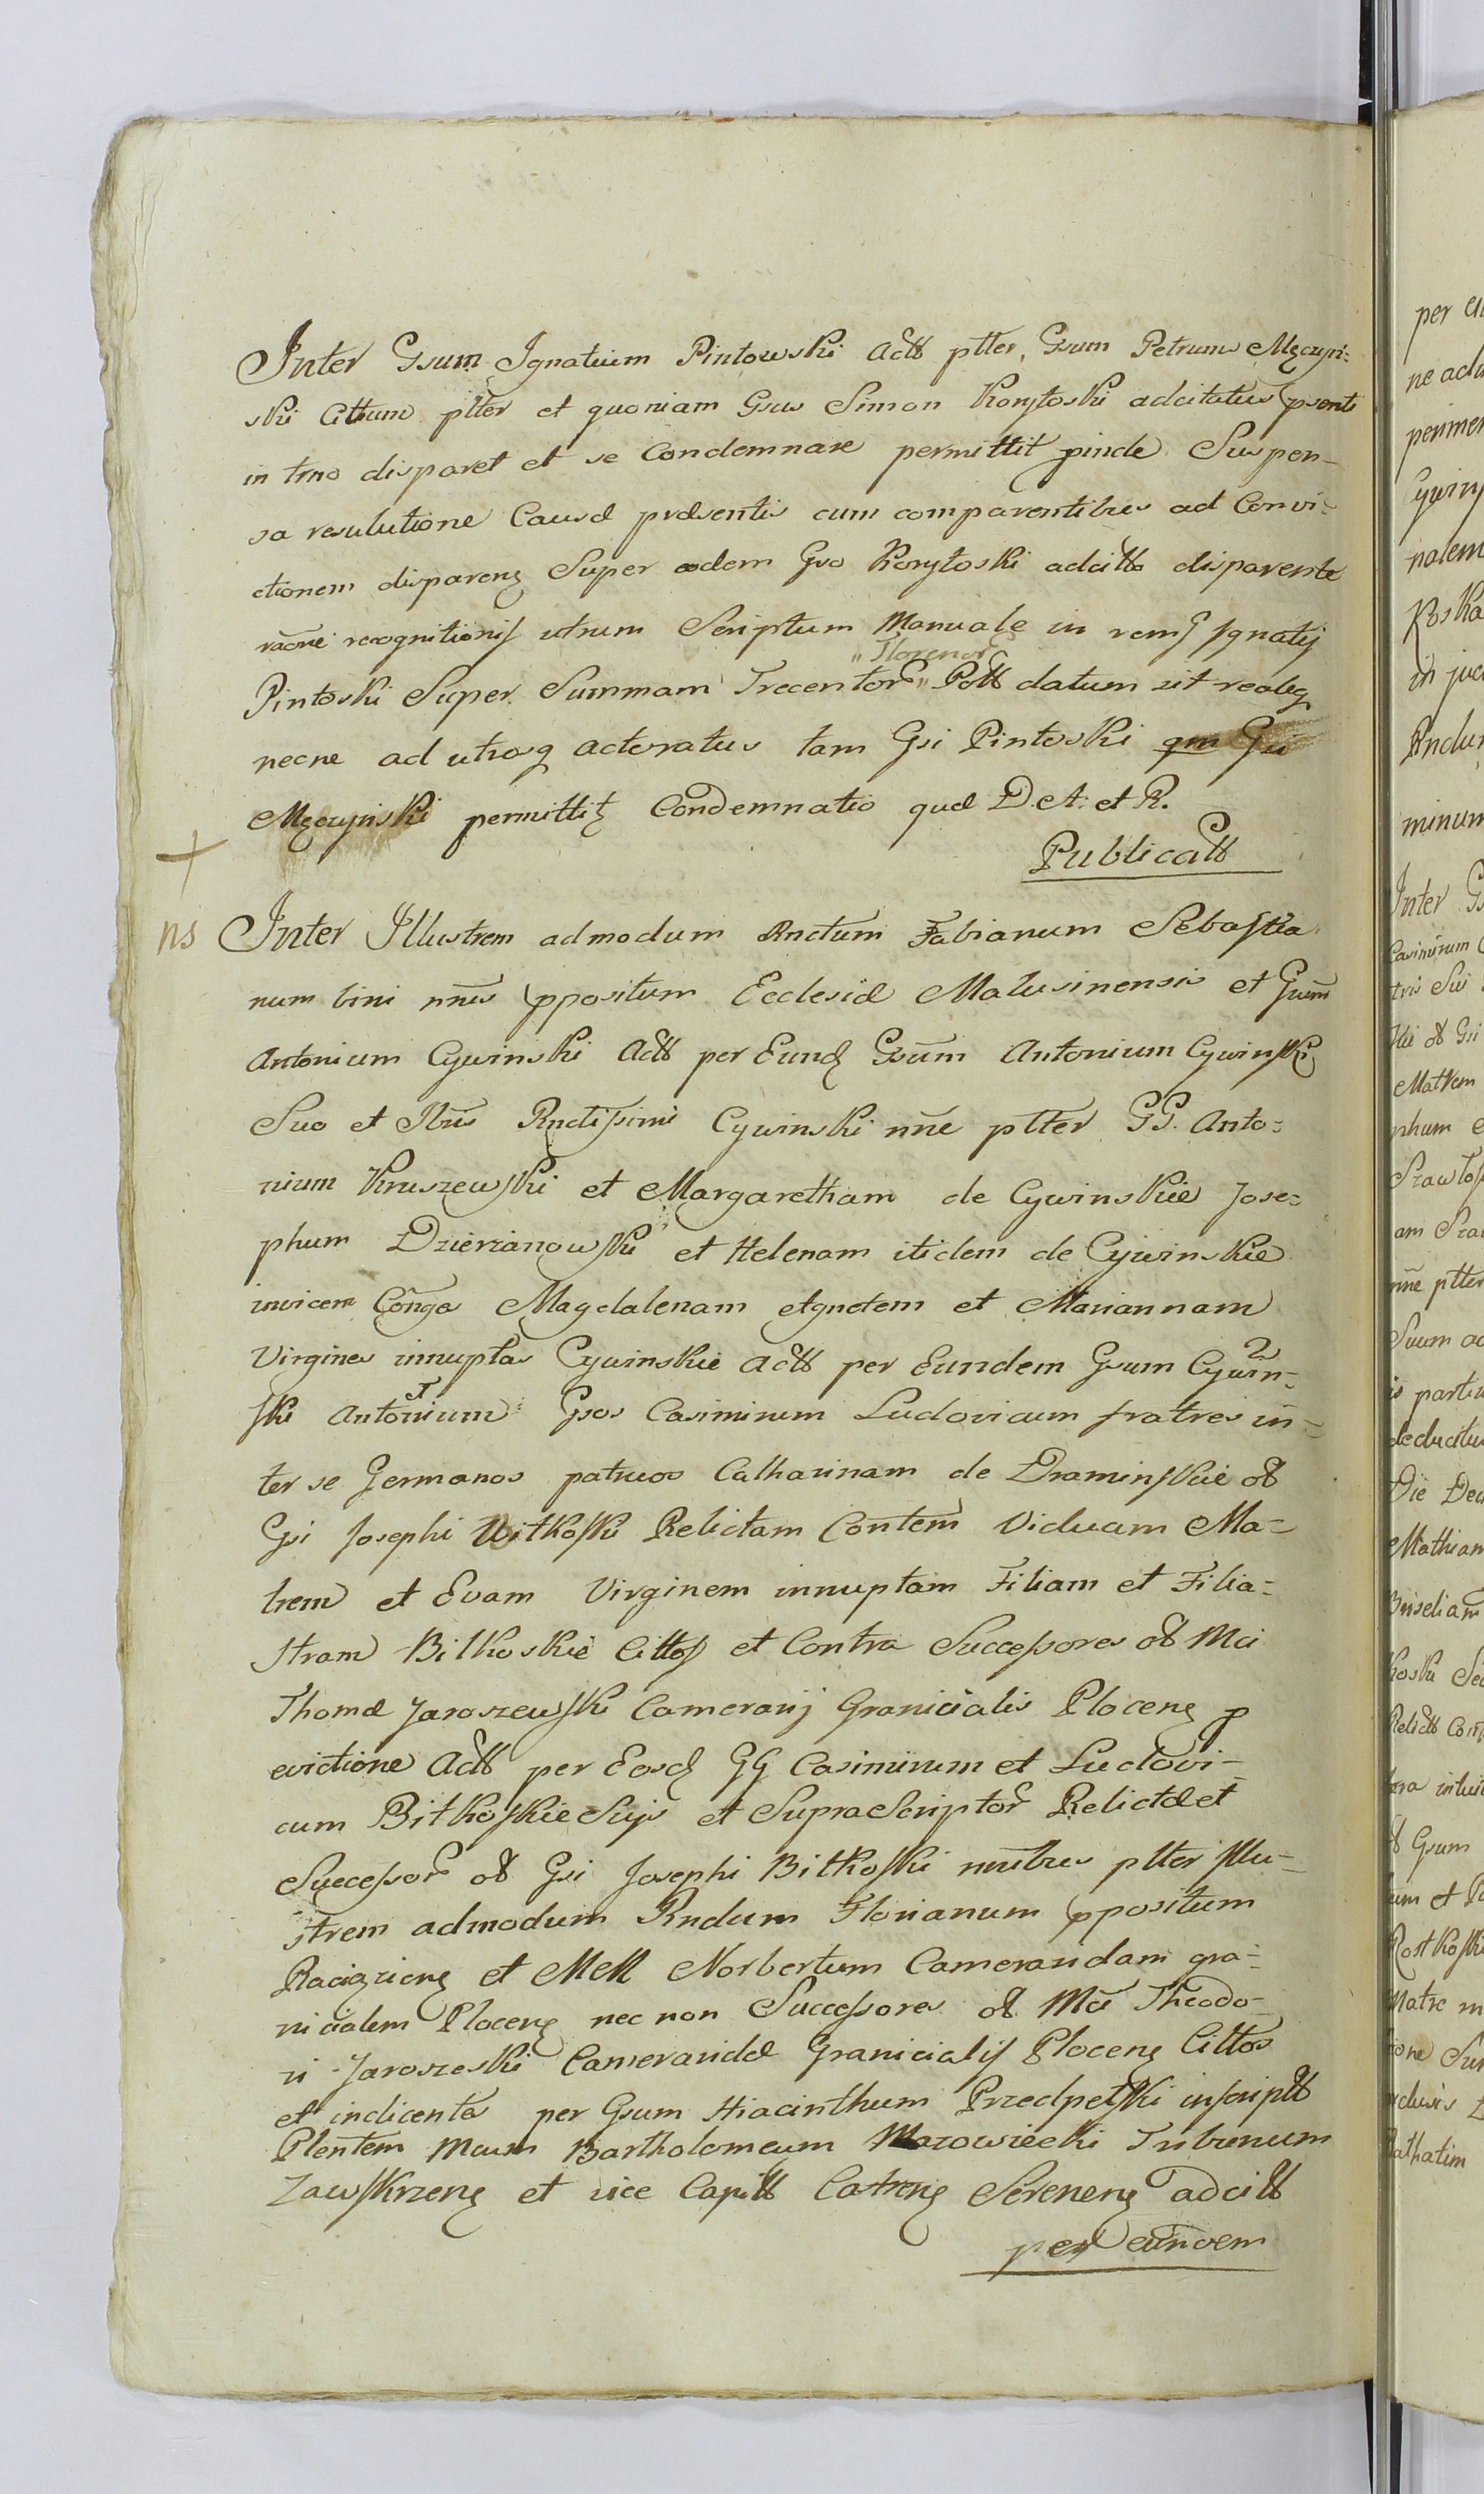 Inter Gsum Ignatium Pintowski Actt ptter, Gsum Petrum Męczyń:
ski Cittum ptter et quoniam Gsus Simon Korytoski adcitatus psenti
in tmo disparet et se Condemnare permittit pinde Suspen-
sa resulutione Causæ præsentis cum comparentibus ad Convi-
ctionem disparenꝫ Super eodem Gso Korytoski adcitto disparente
raõne recognitionis utrum Scriptum Manuale in rem Ignatij
"Florenor
Pintoski Super Summam Trecentor" Pott datum sit realeq
necne ad utrosq actoratus tam Gsi Pintoski qm Gsi
Męczynski permittitꝫ Condemnatio quæ D. A: et R.
Publicatt
+
ns Inter Illustrem admodum Rndum Fabianum Sebastia-
num bini nnis ppositum Ecclesiæ Malusinensis et Gsum
Antonium Cywinski Actt per Eundꝫ Gsum Antonium Cywinski
Suo et Illris Rndissimi Cywinski nne ptter GG. Anto=
nium Kruszewski et Margaretham de Cywinskie Jose=
phum Dzierzanowski et Helenam itidem de Cywinskie
invicem Conges Magdalenam Agnetem et Mariannam
Virgines innuptas Cywinskie Actt per Eundem Gsum Cywin-
ski Antonium Gsos Casimirum Ludovicum fratres in-
ter se Germanos patruos Catharinam de Draminskie ob
Gsi Josephi Witkoski Relictam Contem Viduam Ma-
trem et Evam Virginem innuptam Filiam et Filia=
stram Bitkoskie Cittos et Contra Successores ob Mci
Thomæ Jaroszewski Camerarij Granicialis Plocenꝫ p
evictione Actt per Eosdꝫ GG Casimirum et Ludovi-
cum Bitkoskie Suis et Suprascriptor Relictæ et
Successor ob Gsi Josephi Bitkoski nnibus ptter Illu-
strem admodum Rndum Florianum ppositum
Raciązienꝫ et Mcm Norbertum Camerandam gra-
nicialem Plocenꝫ nec non Successores ob Mci Theodo-
ri Jaroszeski Camerandæ Granicialis Plocenꝫ Cittos
et indicentes per Gsum Hiacinthum Przedpełski inscriptt
Plentem Mcum Bartholomeum Mazowiecki Tribunum
Zawskrzenꝫ et vice Capitt Castrenꝫ Serenenꝫ adcitt
per eundem